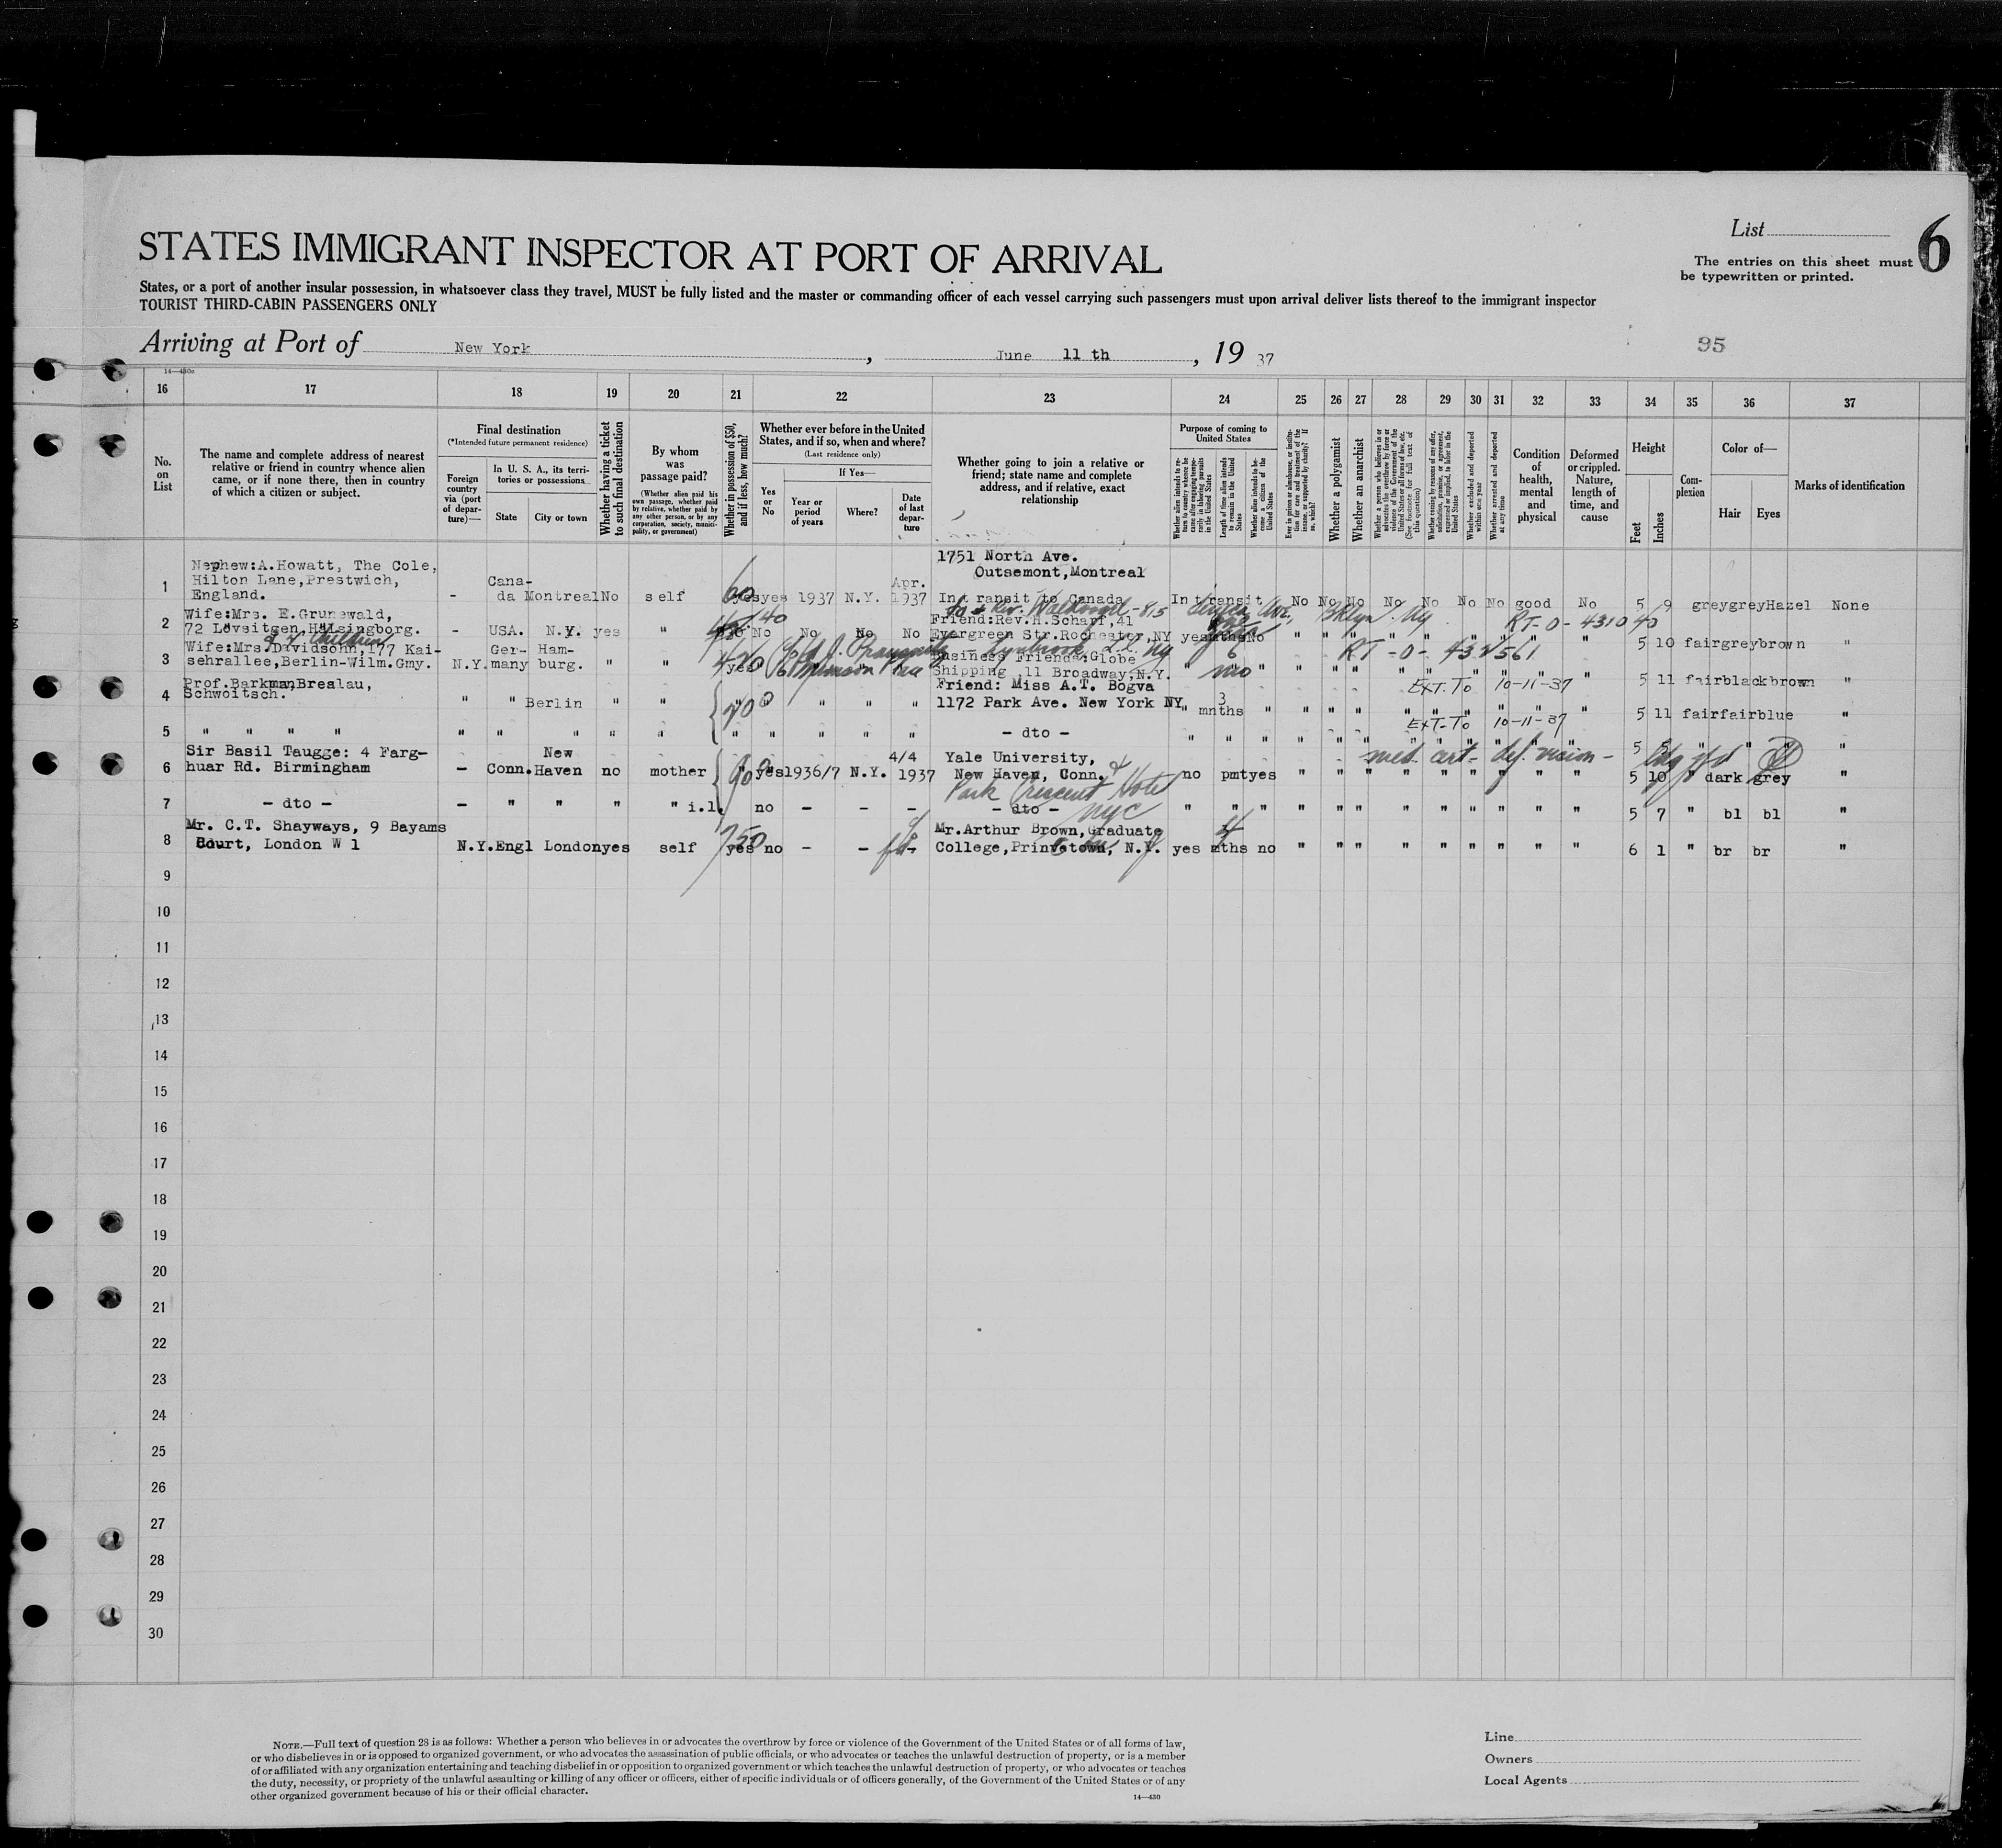 List
6
The entries on this sheet must
be typewritten or printed.
STATES IMMIGRANT INSPECTOR AT PORT OF ARRIVAL
States, or a port of another insular possession, in whatsoever class they travel, MUST be fully listed and the master or commanding officer of each vessel carrying such passengers must upon arrival deliver lists thereof to the immigrant inspector
TOURIST THIRD-CABIN PASSENGERS ONLY
Arriving at Port of New York, June 11 th, 19 37
95
16 17 18 19 20 21 22 23 24 25 26 27 28 29 30 31 32 33 34 35 36 37
No. on List
The name and complete address of nearest
relative or friend in country whence alien
came, or if none there, then in country
of which a citizen or subject.
Final destination
(*Intended future permanent residence)
Foreign country via (port of departure)—
In U. S. A., its territories or possessions
State
City or town
Whether having a ticket to such final destination
By whom was passage paid?
(Whether alien paid his own passage, whether paid by relative, whether paid by any other person, or by any corporation, society, municipality, or government)
Whether in possession of $50, and if less, how much?
Whether ever before in the United States, and if so, when and where?
(Last residence only)
Yes or No
If Yes—
Year or period of years
Where?
Date of last departure
Whether going to join a relative or
friend; state name and complete
address, and if relative, exact
relationship
Purpose of coming to United States
Whether alien intends to return to country whence he came after engaging temporarily in laboring pursuits in the United States
Length of time alien intends to remain in the United States
Whether alien intends to become a citizen of the United States
Ever in prison or almshouse, or institution for care and treatment of the insane, or supported by charity? If so, which?
Whether a polygamist
Whether an anarchist
Whether a person who believes in or advocates the overthrow by force or violence of the Government of the United States or all forms of law, etc. (See footnote for full text of this question)
Whether coming by reasons of any offer, solicitation, promise, or agreement, expressed or implied, to labor in the United States
Whether excluded and deported within one year
Whether arrested and deported at any time
Condition of health, mental and physical
Deformed or crippled. Nature, length of time, and cause
Height
Feet
Inches
Complexion
Color of—
Hair
Eyes
Marks of identification
1751 North Ave.
Outsemont, Montreal
1 Nephew:A.Howatt, The Cole,
Hilton Lane,Prestwich,
England.
- Cana-
da Montreal No self 60 yes yes 1937 N.Y. Apr.
1937 In transit to Canada In transit No No No No No No No good No 5 9 grey grey Hazel None
2 Wife:Mrs. E.Grunewald,
72 Lövsitgen,Hälsingborg.
- USA. N.Y. yes " No No No No
Friend:Rev.H.Scharf,41
Evergreen Str.Rochester,NY yes mths No
Ave, Bklyn. Ny RT-0-431040
5 10 fair grey brown "
3 Wife:Mrs.Davidsohn,177 Kai-
sehrallee,Berlin-Wilm.Gmy.
& children
N.Y. Ger-
many Ham-
burg. " " yes
Business Friends:Globe
Shipping 11 Broadway,N.Y. " 6 mo "
RT-0-432561
5 11 fair black brown "
4 Prof.Barkman,Brealau,
Schwoitsch.
" " Berlin " "
Friend: Miss A.T. Bogva
1172 Park Ave. New York NY " 3
mnths "
EXT. TO 10-11-37
5 11 fair fair blue "
5 " " " " " " " " " - dto - " " "
EXT-TO 10-11-37
6 Sir Basil Taugge: 4 Farg-
huar Rd. Birmingham
- Conn. New
Haven no mother yes 1936/7 N.Y. 4/4
1937
Yale University,
New Haven, Conn. no pmt yes
med. cert- def. vision-
5 10 " dark grey "
7 - dto - - " " " " i.l. no - - - - dto - " " "
Park Crescent Hotel
NYC
5 7 " bl bl "
8 Mr. C.T. Shayways, 9 Bayams
Court, London W 1
N.Y. Engl London yes self yes no - - -
Mr.Arthur Brown,Graduate
College,Prinvetown, N.Y. yes 4
mths no
6 1 " br br "
9
10
11
12
13
14
15
16
17
18
19
20
21
22
23
24
25
26
27
28
29
30
NOTE.—Full text of question 28 is as follows: Whether a person who believes in or advocates the overthrow by force or violence of the Government of the United States or of all forms of law,
or who disbelieves in or is opposed to organized government, or who advocates the assassination of public officials, or who advocates or teaches the unlawful destruction of property, or is a member
of or affiliated with any organization entertaining and teaching disbelief in or opposition to organized government or which teaches the unlawful destruction of property, or who advocates or teaches
the duty, necessity, or propriety of the unlawful assaulting or killing of any officer or officers, either of specific individuals or of officers generally, of the Government of the United States or of any
other organized government because of his or their official character.
14—430
Line
Owners
Local Agents